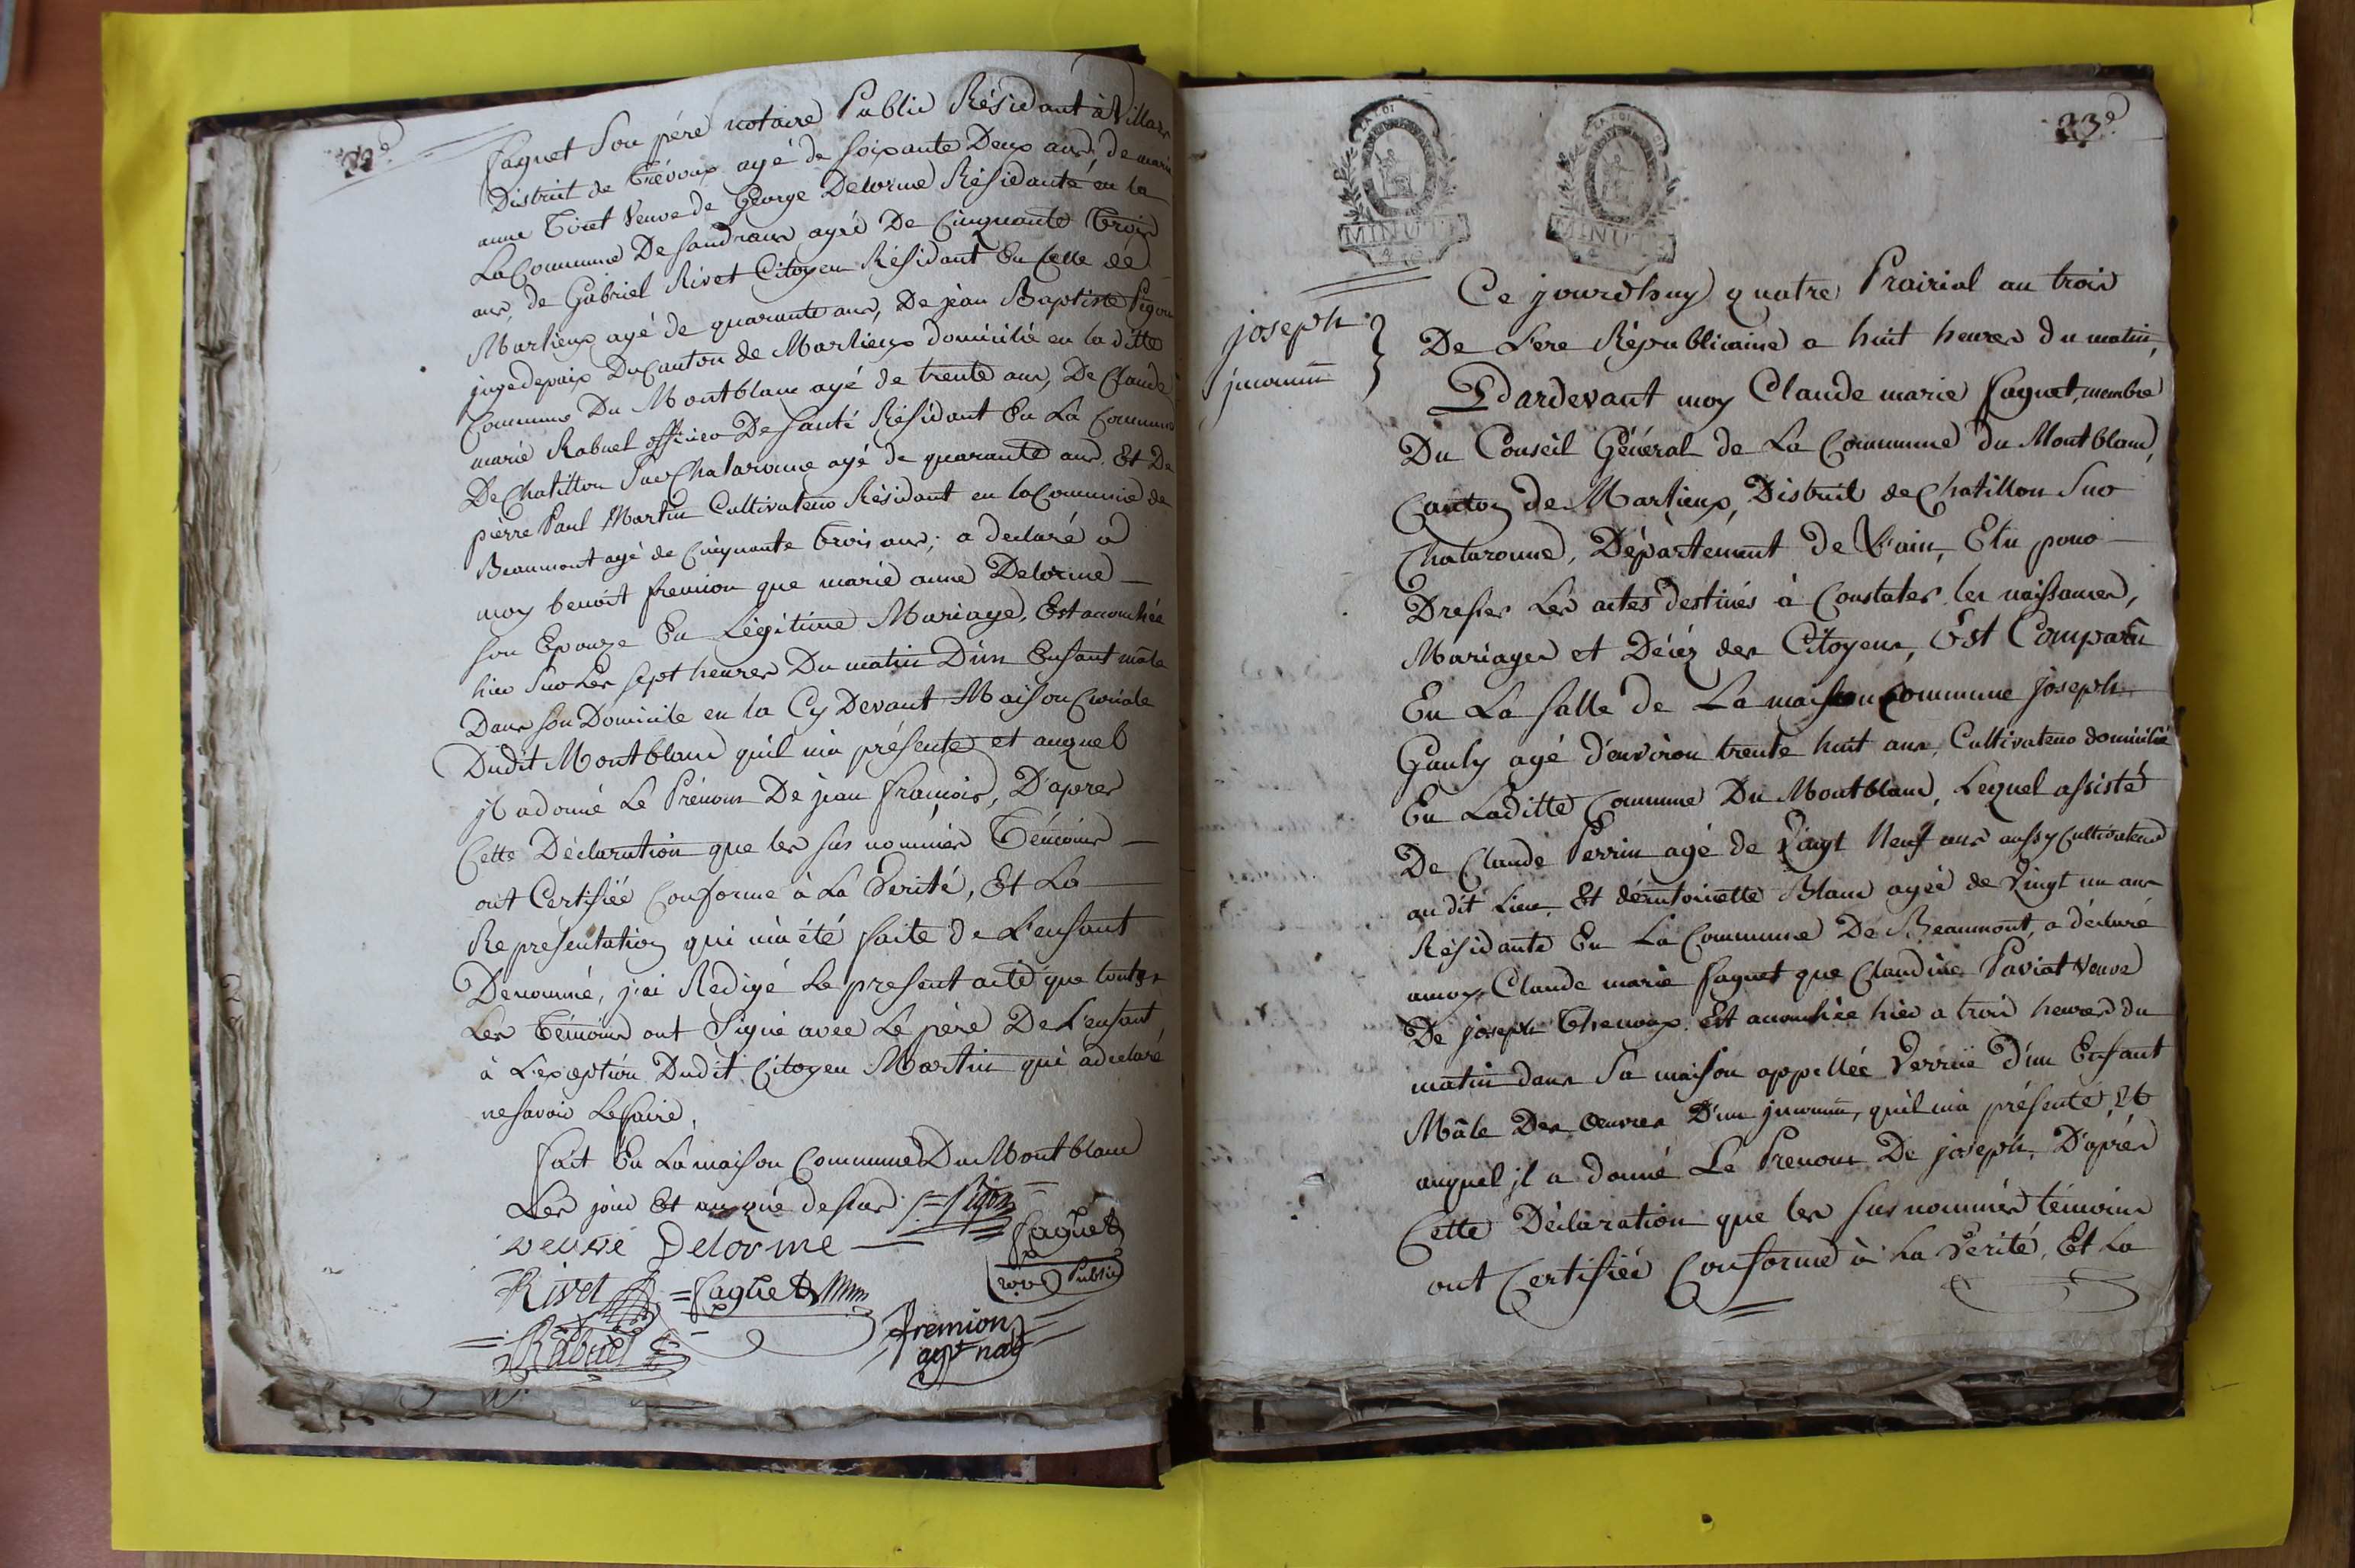 22e
faguet Son père notaire Public Résidant à Villars
District de Trévoux agé de soixante Deux ans, de marie
anne Tiret Veuve de George Delorme Résidante en la
La Commune De Sandrans agée De Cinquante Trois
ans, de Gabriel Rivet Citoyen Résidant En celle de
Marlieux agé de quarante ans, De jean Baptiste Pigon
juge de paix Du Canton de Marlieux domicilié en la ditte
Commune Du Montblanc agé de trente ans, De Claude
marie Rabuel officier De Santé Résidant En La Commune
De Chatillon Sur Chalaronne agé de quarante ans. Et De
pierre Paul Martin Cultivateur Résidant en la Commune de
Beaumont agé de Cinquante Trois ans; a declaré a
moy benoit fremion que marie anne Delorme
son Epouze En Légitime Mariage, Est accouchée
hier Sur Les sept heures Du matin D'un Enfant mâle
Dans son Domicile en la Cy Devant Maison Curiale
Dudit Montblanc qu'il m'a présenté et auquel
jl a donné Le Prénom De jean françois, D'apres
Cette Déclaration que les sus nommés Témoins
ont Certifiée Conforme à La Verité, Et La
Representation qui m'a été faite de L'enfant
Denommé, j'ai Redigé Le present acte que tous
Les Témoins ont Signé avec Le père De L'enfant
à L'exception Dudit Citoyen Martin qui a declaré
ne savoir Le faire,
fait En La maison Commune Du Montblanc
Les jour Et an que dessus Pigon
veuve Delorme faguet
Rivet faguet Public
Rabuel fremion
agt nat
23e
MINUTE
MINUTE
LA LOI
joseph
jnconnu
Ce jourdhuy quatre Prairial an trois
De L'ere Républicaine a huit heures du matin,
Pardevant moy Claude marie faguet, membre
Du Conseil Général de La Commune du Montblanc,
Canton de Marlieux, District de Chatillon Sur
Chalaronne, Département de L'ain, Elu pour
Dresser Les actes destinés à Constater les naissances,
Mariages et Décéz des Citoyens, Est Comparu
En La salle de La maison Commune joseph
Gauly agé d'environ trente huit ans, Cultivateur domicilié
En Laditte Commune Du Montblanc, Lequel assisté
De Claude Perrin agé de Vingt Neuf ans aussy Cultivateur
au dit Lieu, Et d'entoinette Blanc agée de Vingt un ans
Résidante En La Commune De Beaumont, a déclaré
a moy Claude marie faguet que Claudine Paviot Veuve
De joseph Thevoux Est accouchée hier a trois heures du
matin dans Sa maison appellée Verrue d'un Enfant
Mâle Des Œuvres D'un jnconnu, qu'il m'a présenté, Et
auquel jl a donné Le Prenom De joseph, D'après
Cette Déclaration que les sus nommés témoins
ont Certifiée Conforme à La Verité, Et La